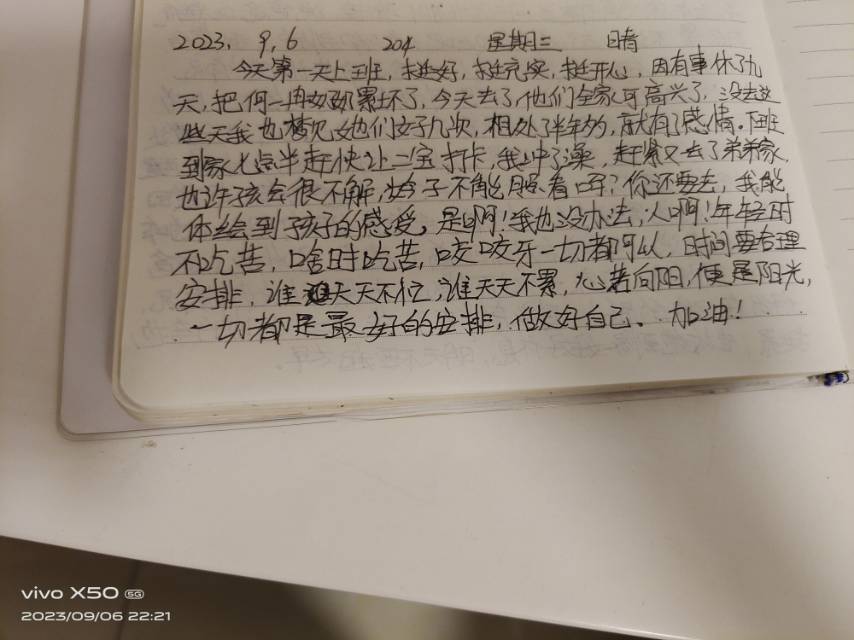 2023. 9.6 204 星期三 晴
今天第一天上班，挺好，挺充实，挺开心，因有事休了九
天，把何一冉奶奶累坏了，今天去了，他们全家可高兴了，没去这
些天我也梦见她们好几次，相处了半年多，就有了感情。下班
到家七点半赶快让二宝打卡，我冲了澡，赶紧又去了弟弟家，
也许孩会很不解，妗子不能照看吗？你还要去，我能
体会到孩子的感受。是啊！我也没办法，人啊！年轻时
不吃苦，啥时吃苦，咬咬牙一切都可以，时间要合理
安排，谁天天不忙，谁天天不累，心若向阳，便是阳光，
一切都是最好的安排，做好自己。加油！
vivo X50 5G
2023/09/06 22:21